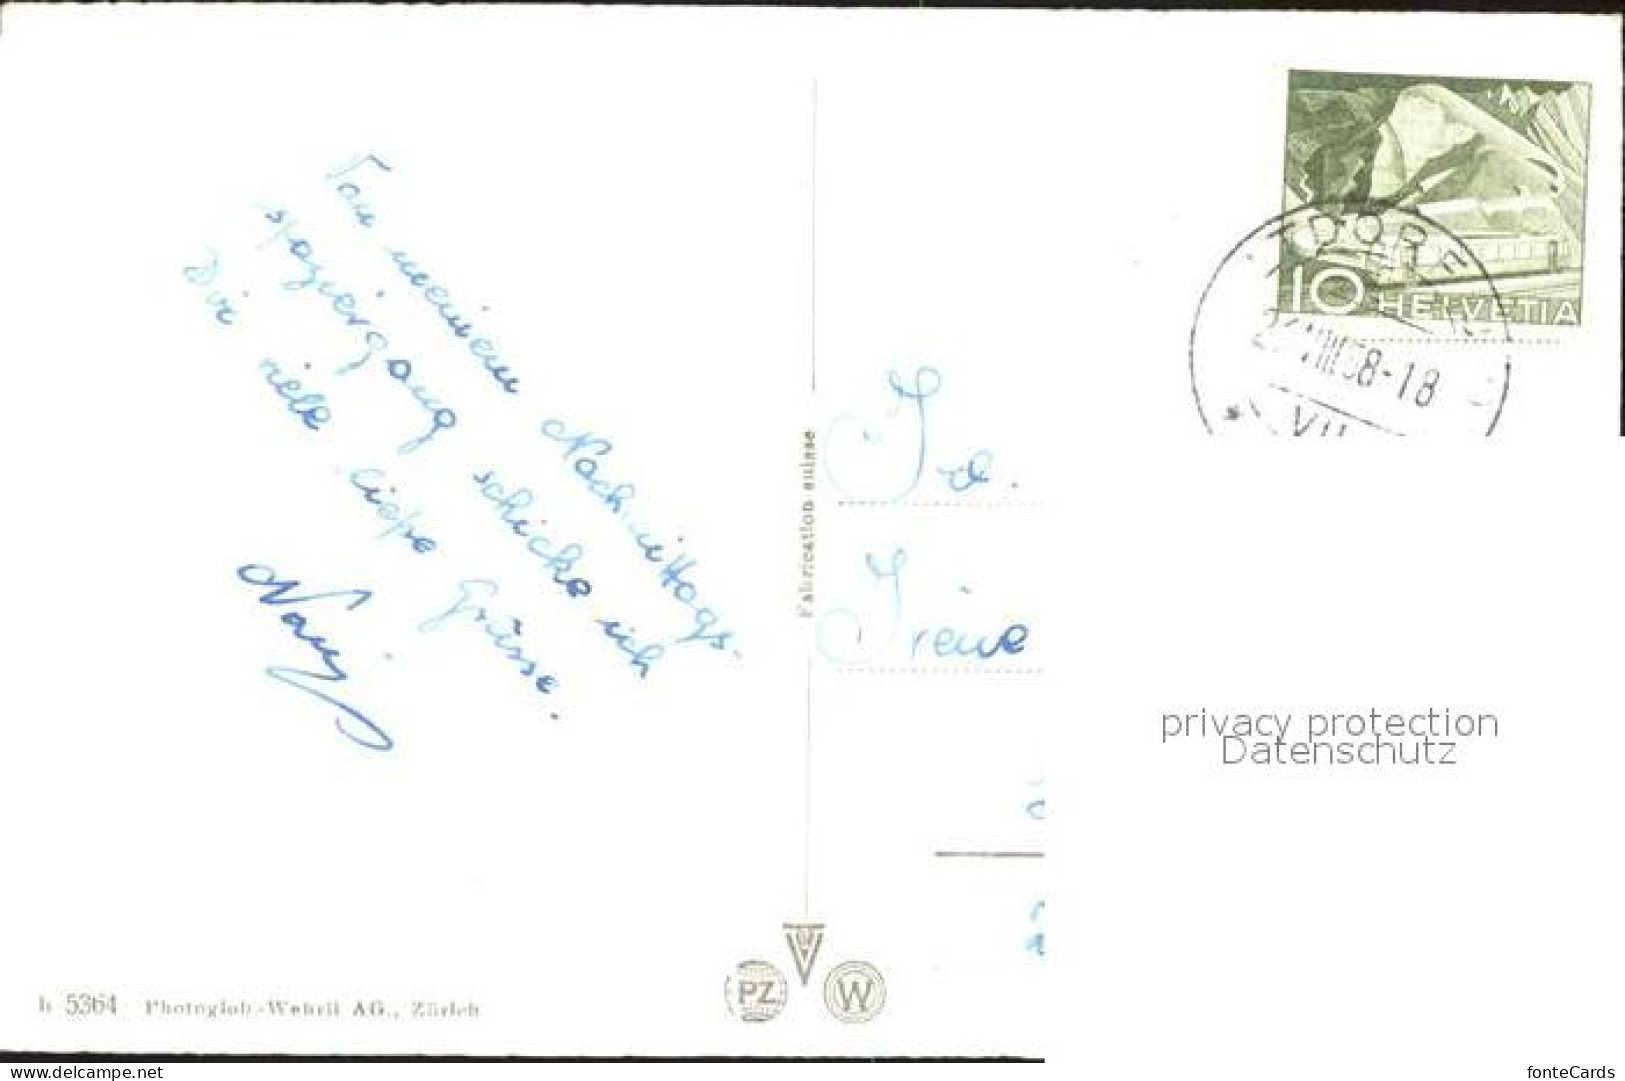 Von meinem Nachmittags-
spaziergang schicke ich
Dir viele liebe Grüsse.
Fabrication suisse
10 HELVETIA
VIII 58-18
Irène
privacy protection
Datenschutz
PZ
W
h 5364 Photoglob-Wehrli AG., Zürich
www.delcampe.net
fonteCards